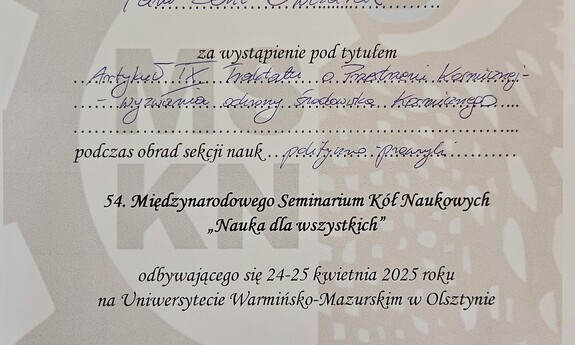 za wystąpienie pod tytułem
Artykuł IX Traktatu o Przestrzeni Kosmicznej-
- wyzwania ochrony środowiska kosmicznego
podczas obrad sekcji nauk polityczno-prawnych
54. Międzynarodowego Seminarium Kół Naukowych
„Nauka dla wszystkich”
odbywającego się 24-25 kwietnia 2025 roku
na Uniwersytecie Warmińsko-Mazurskim w Olsztynie
MS
KN